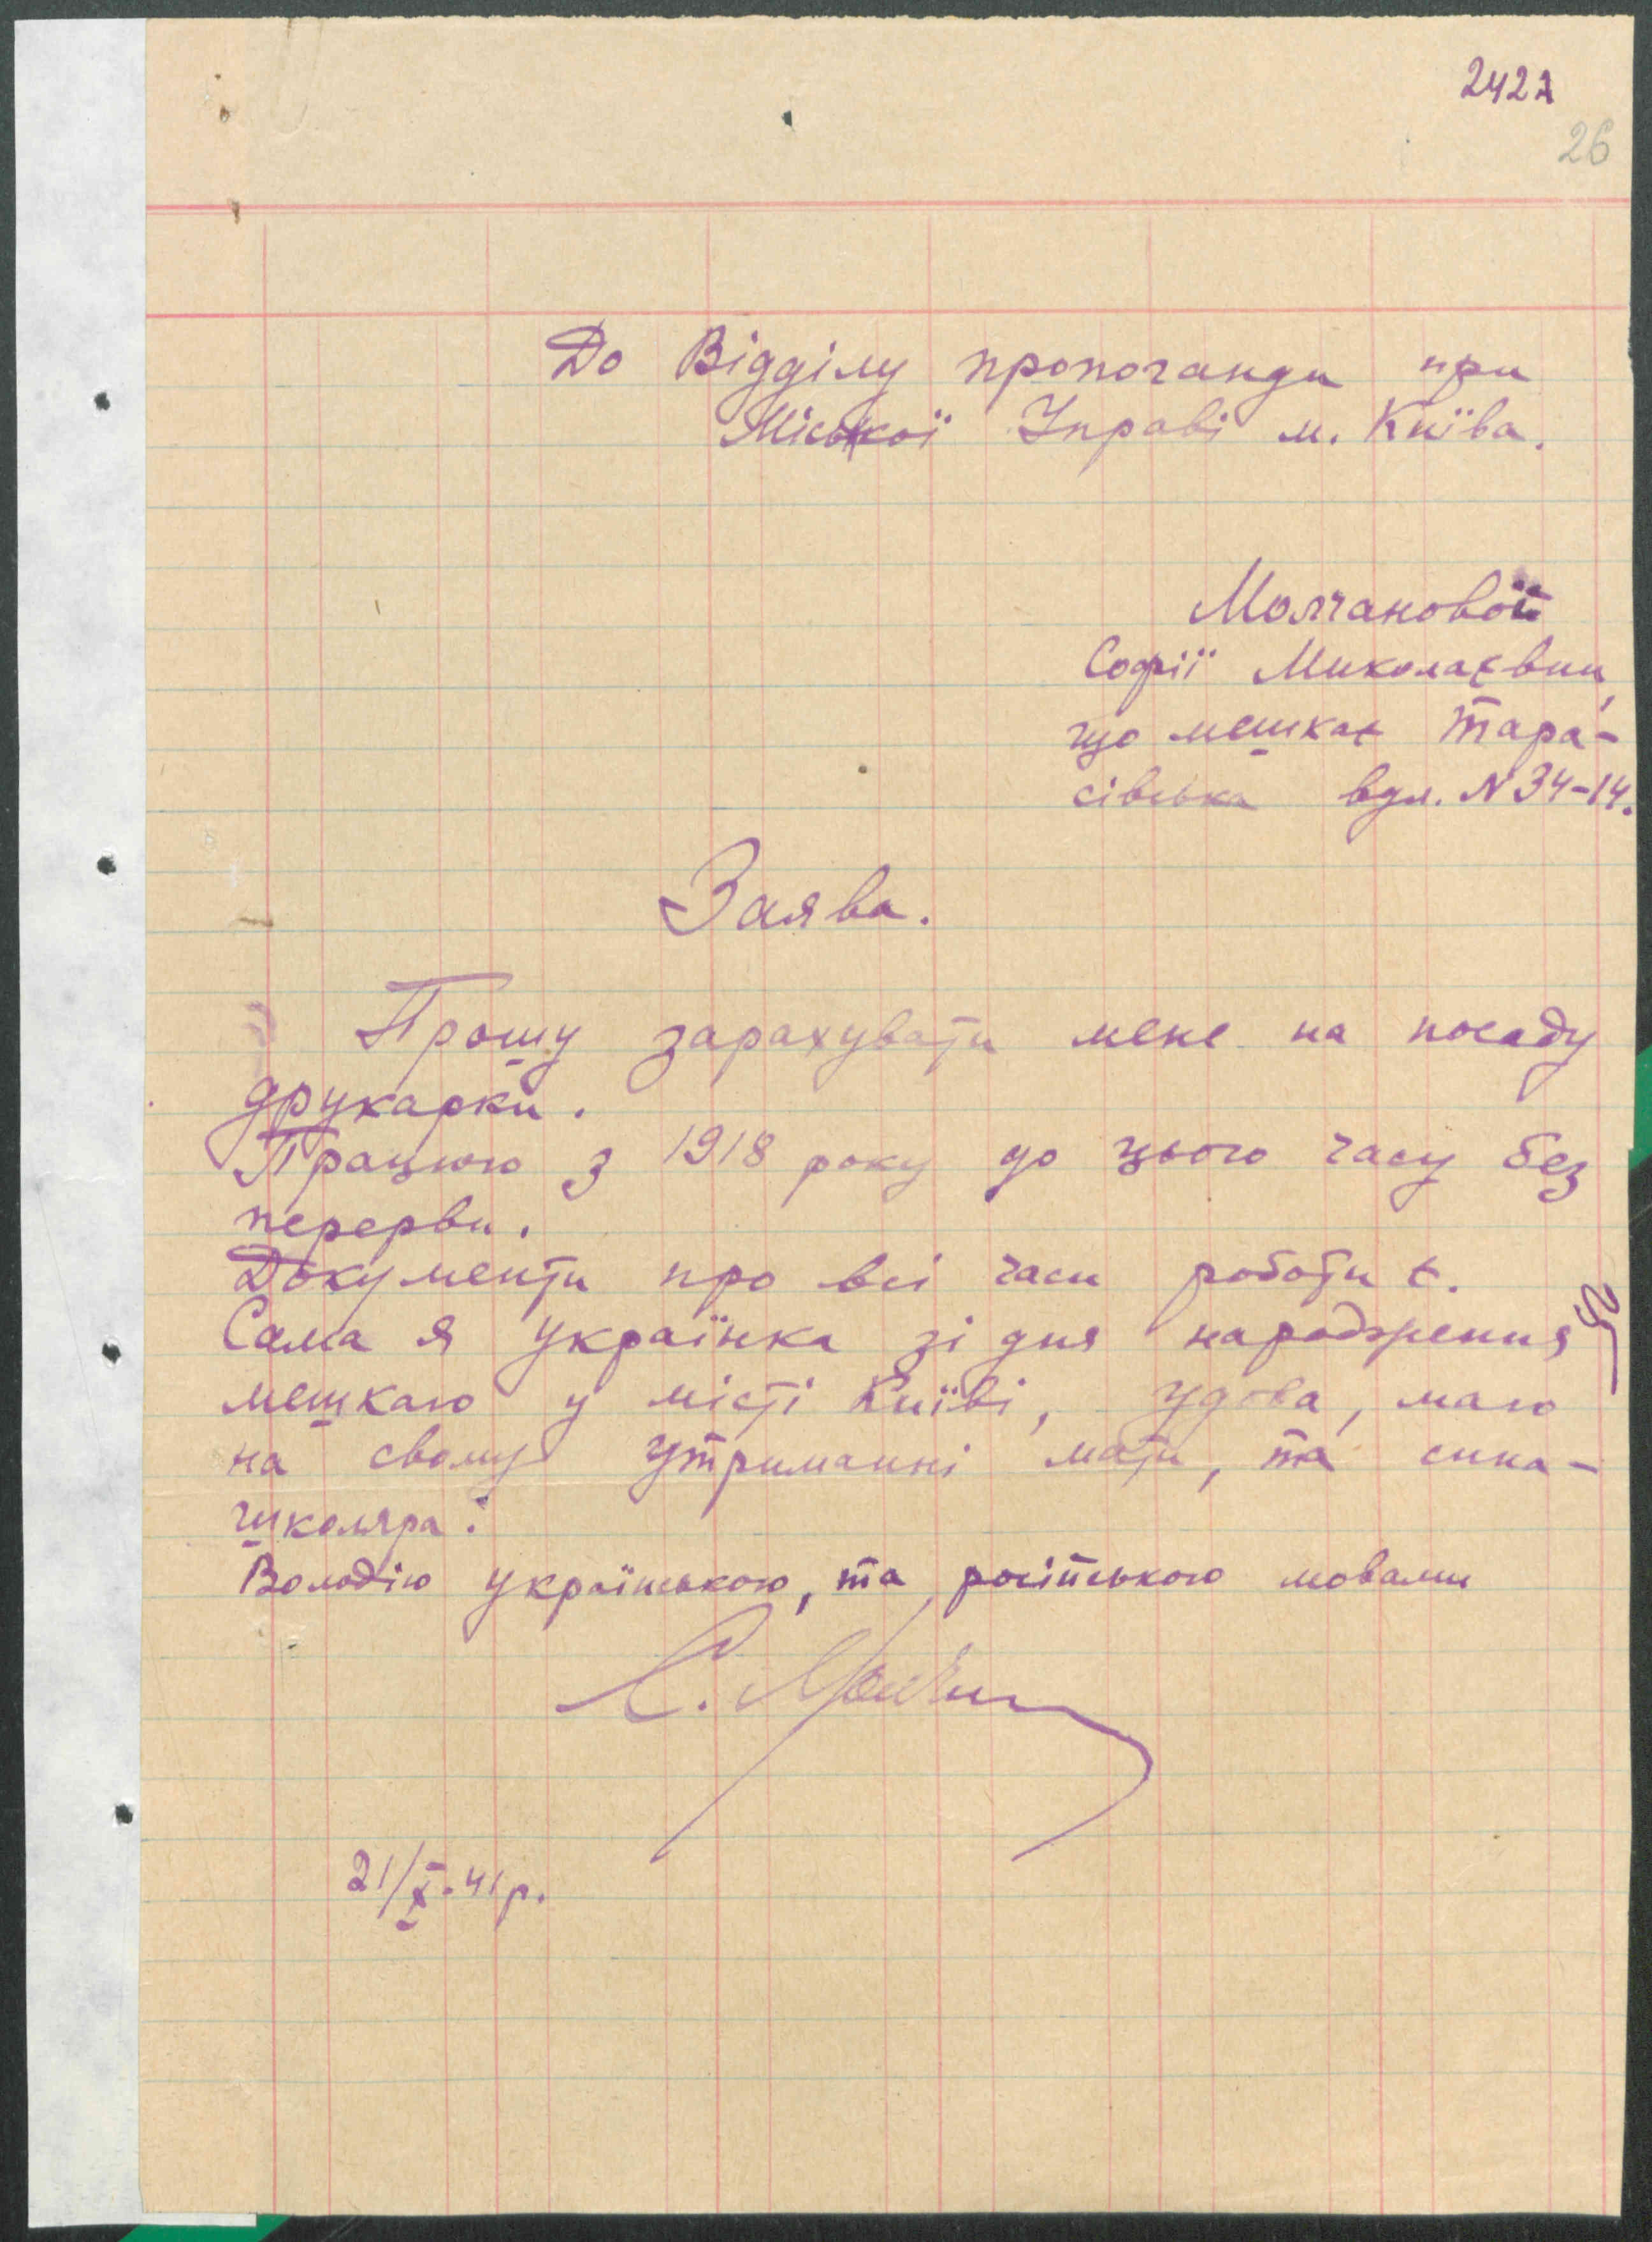 242
26
До Відділу пропоганди при
Міської Управі м. Київа.
Молчанової
Софії Миколаєвни,
що мешкає Тара-
сівська вул. N 34-14.
Заява.
Прошу зарахувати мене на посаду
друкарки.
Працюю з 1918 року до цього часу без
перерви.
Документи про всі часи роботи є.
Сама я українка зі дня народження
мешкаю у місті Київі, удова, маю
на свому утриманні мати, та сина-
школяра.
Володію українською, та російською мовами
С. Молчан
21/X-41р.